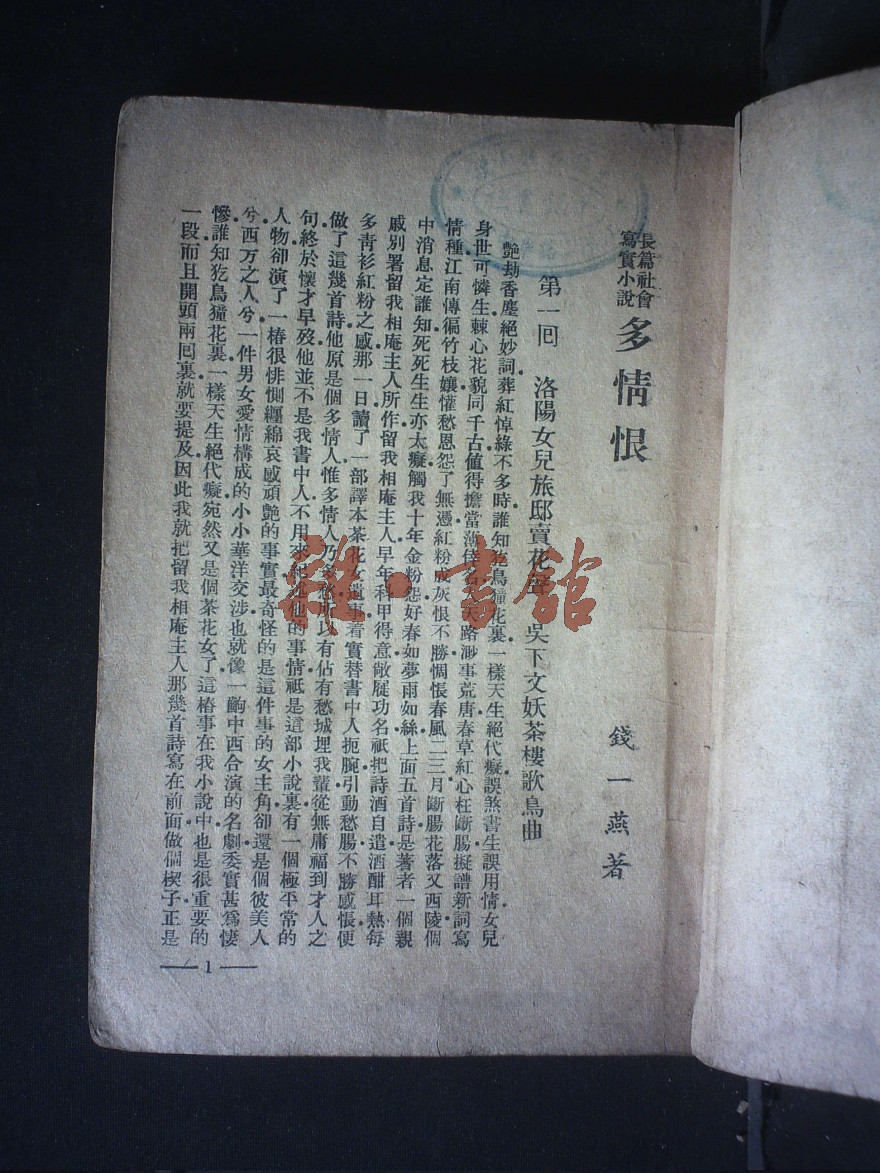 長篇社會
寫實小說
多情恨
錢一燕著
第一回 洛陽女兒旅邸賣花聲 吳下文妖茶樓歌鳥曲
艷劫香塵絕妙詞葬紅悼綠不多時誰知犵鳥獞花裏一樣天生絕代癡誤煞書生誤用情女兒
身世可憐生棘心花貌同千古值得擔當薄倖名天路渺事荒唐春草紅心枉斷腸擬譜新詞寫
情種江南傳徧竹枝孃懽愁恩怨了無憑紅粉成灰恨不勝惆悵春風二三月斷腸花落又西陵個
中消息定誰知死死生生亦太癡觸我十年金粉怨好春如夢雨如絲上面五首詩是著者一個親
戚別署留我相庵主人所作留我相庵主人早年科甲得意敝屣功名祇把詩酒自遣酒酣耳熱每
多青衫紅粉之感那一日讀了一部譯本茶花女遺事着實替書中人扼腕引動愁腸不勝感悵便
做了這幾首詩他原是個多情人惟多情人乃多愁所以有佔有愁城埋我輩從無庸福到才人之
句終於懷才早歿他並不是我書中人不用來紀述他的事情祇是這部小說裏有一個極平常的
人物卻演了一樁很悱惻纏綿哀感頑艷的事實最奇怪的是這件事的女主角卻還是個彼美人
兮西方之人兮一件男女愛情構成的小小華洋交涉也就像一齣中西合演的名劇委實甚爲悽
慘誰知犵鳥獞花裏一樣天生絕代癡宛然又是個茶花女了這樁事在我小說中也是很重要的
一段而且開頭兩回裏就要提及因此我就把留我相庵主人那幾首詩寫在前面做個楔子正是
1
雜·書館